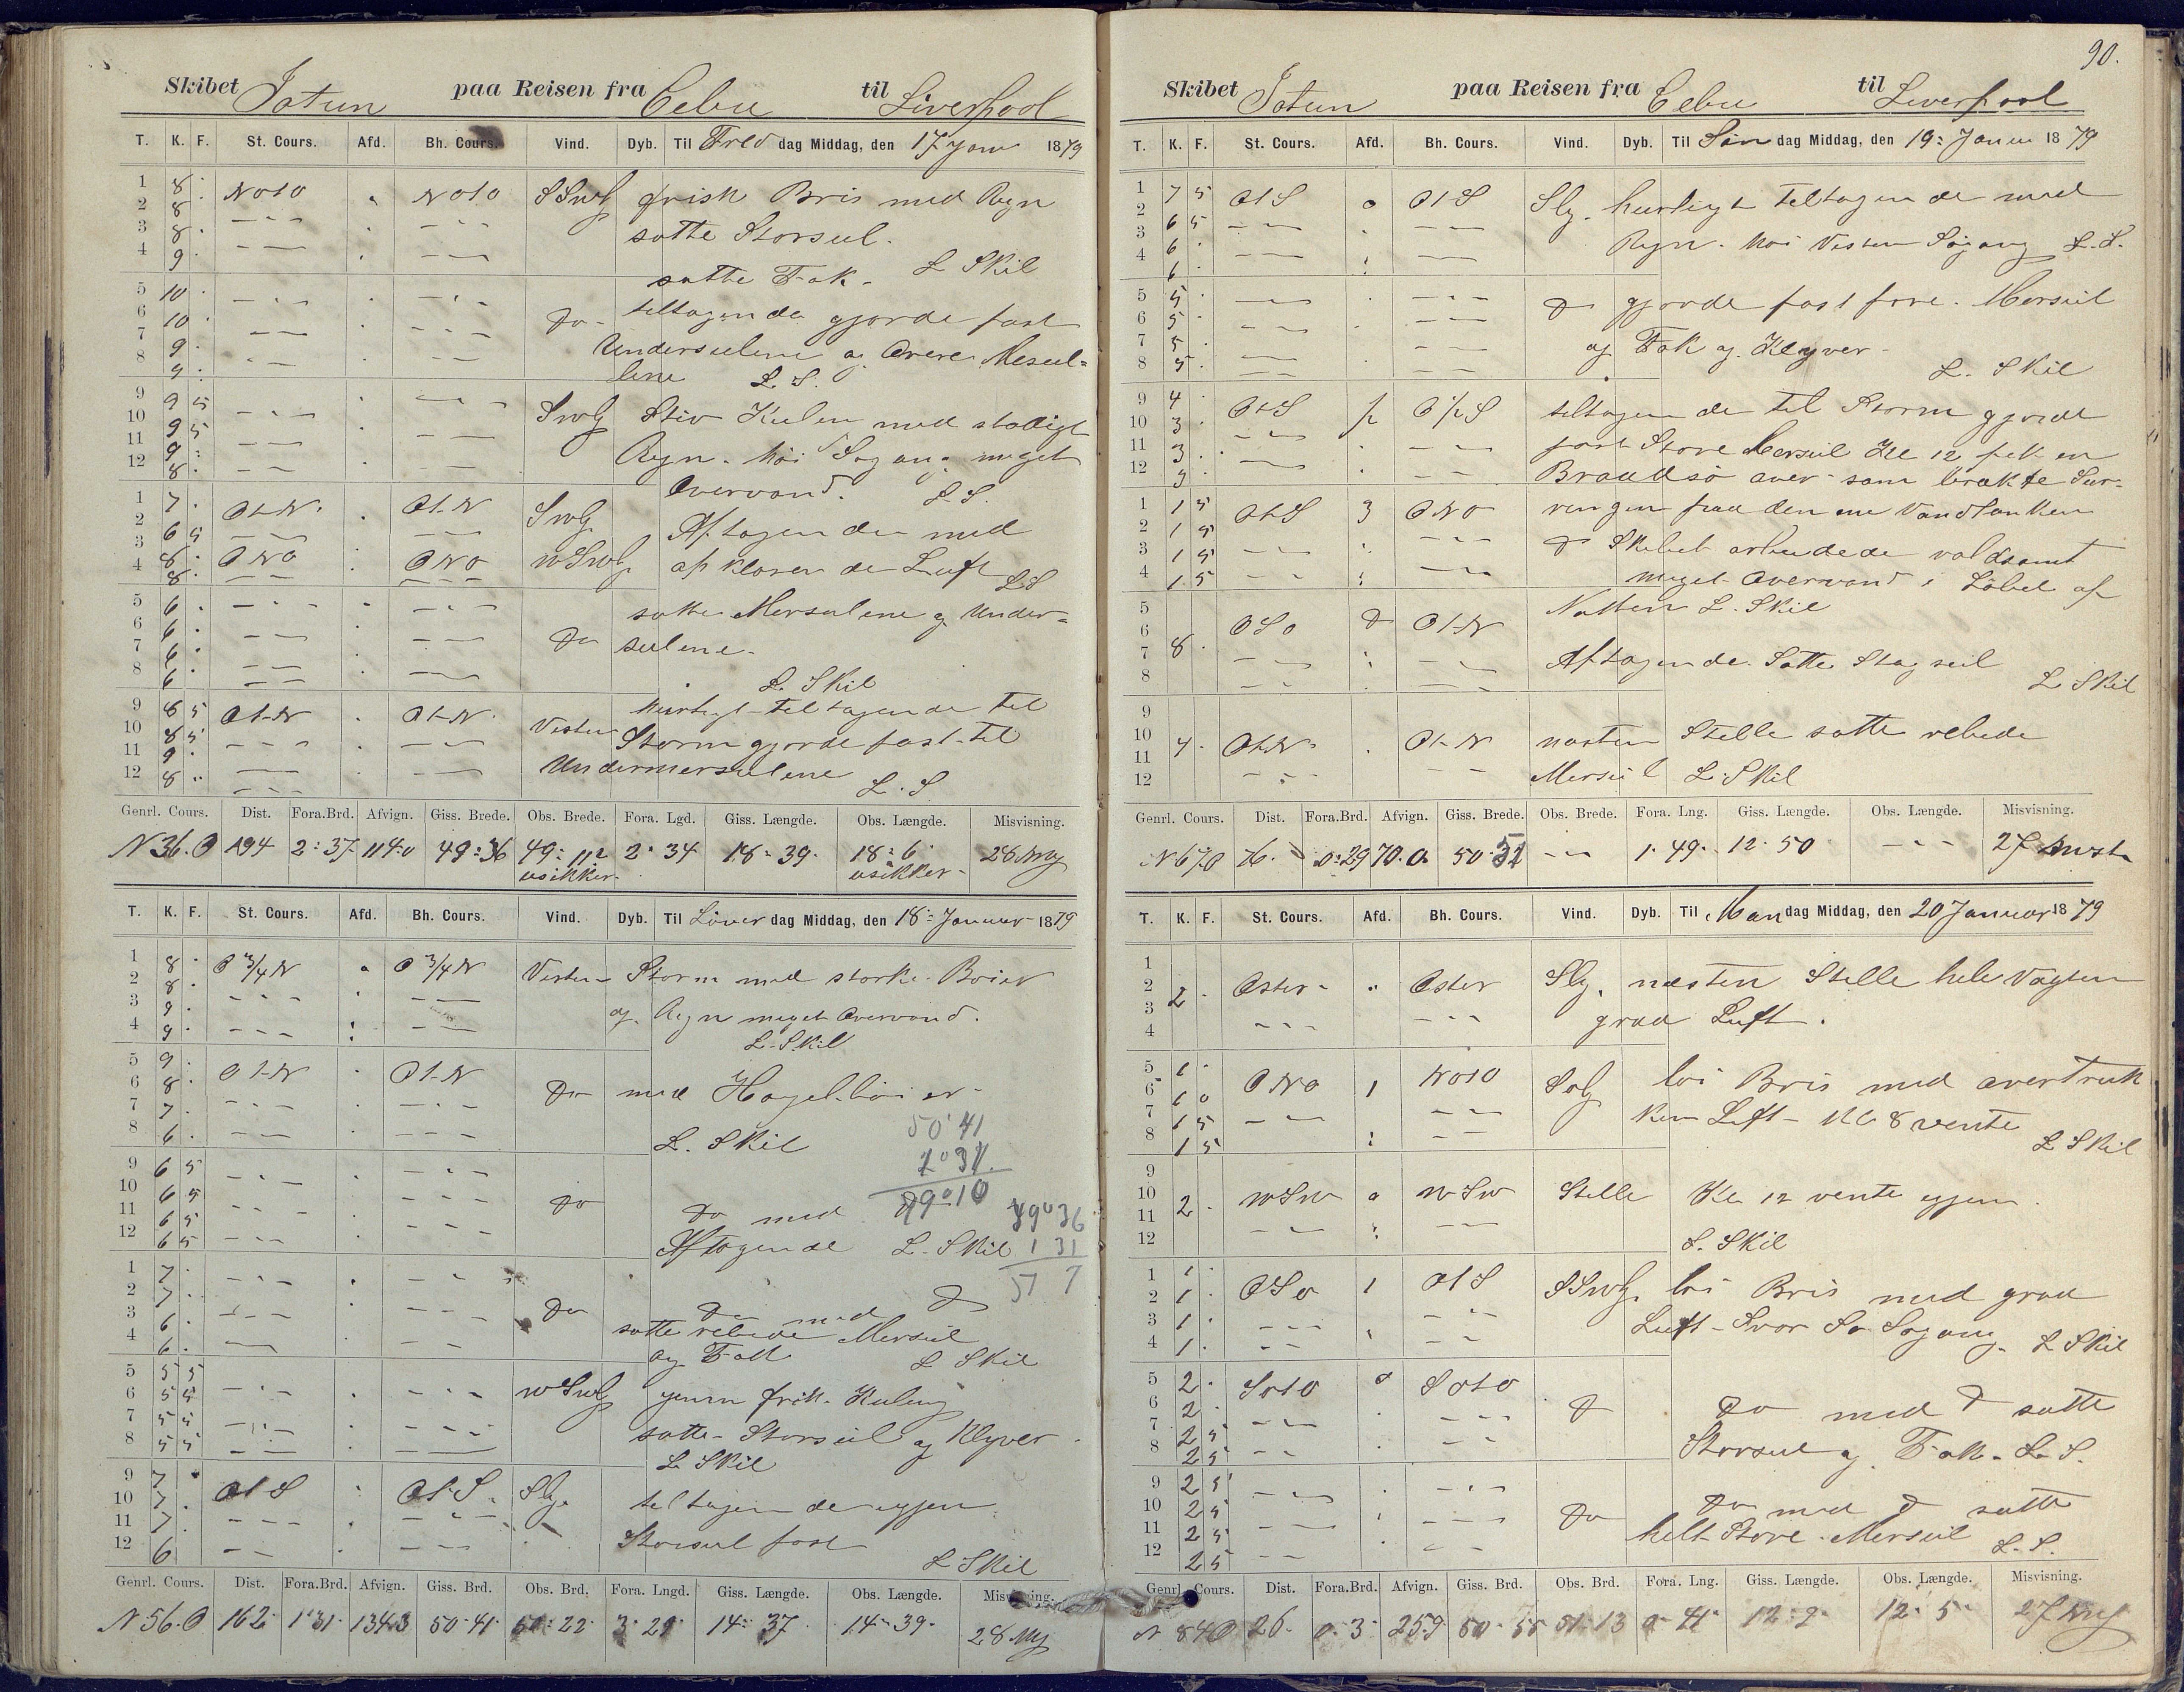 90.
Skibet Jotun paa Reisen fra Cebu til Liverpool
T. K. F. St. Cours. Afd. Bh. Cours. Vind. Dyb. Til Fred dag Middag, den 17 Janu 1879
1 8 . NOtO . NOtO SSWlg frisk Bris med Regn
2 8 . satte Storseil.
3 8 .
4 9 . L Skil
satte Fok.
5 10 . Do tiltagende gjorde fast
6 10 . Underseilene og Øvere Merseil=
7 9 . lene L. S.
8 9 .
9 9 5 SWlg Stiv Kuling med stadigt
10 9 5 Regn. høi Søgang meget
11 9 . Overvand. L. S.
12 8 .
1 7 . OtN . OtN SWlg Aftagende med
2 6 5
3 8 . ONO . ONO WSWlg afklarende Luft LS
4 8 .
5 6 . satte Merseilene og Under=
6 6 . Do seilene.
7 6 .
8 6 . L. Skil
9 8 5 OtN . OtN. Vesten hurtigt tiltagende til
10 8 5 Storm gjorde fast til
11 9 . Undermerseilene L. S
12 8 .
Genrl. Cours. Dist. Fora.Brd. Afvign. Giss. Brede. Obs. Brede. Fora. Lgd. Giss. Længde. Obs. Længde. Misvisning.
N 36. O 194 2°37 114.0 49°36 49°11 2°34 18°39. 18°6 28 NVg
usikker usikker
T. K. F. St. Cours. Afd. Bh. Cours. Vind. Dyb. Til Löver dag Middag, den 18 Januar 1879
1 8 . O 3/4 N . O 3/4 N Vesten Storm med stærke Boier
2 8 . og Regn meget Overvand.
3 9 . L. Skil
4 9 .
5 9 . OtN . OtN Do med Hagelböier
6 8 .
7 7 . 50°41
8 6 . L. Skil 1°31
9 6 5 49°10
10 6 5 Do Do med 49°36
11 6 5 Aftagende L. Skil 1 31
12 6 5 51 7
1 7 . Do Do med Do
2 7 . satte rebede Merseil
3 6 . og Fok L Skil
4 6 .
5 5 5 WSWlg jevn frisk Kuling
6 5 5 satte Storseil og Klyver
7 5 5 L. Skil
8 5 5
9 7 . OtS . OtS. Slg. tiltagende igjen
10 7 . Storseil fast
11 7 . L Skil
12 6
Genrl. Cours. Dist. Fora.Brd. Afvign. Giss. Brd. Obs. Brd. Fora. Lngd. Giss. Længde. Obs. Længde. Misvisning.
N 56. O 162 1°31 134.3 50°41 50°22 3°29 14°37 14°39. 28 NVg
Skibet Jotun paa Reisen fra Cebu til Liverpool
T. K. F. St. Cours. Afd. Bh. Cours. Vind. Dyb. Til Søn dag Middag, den 19 Januar 1879
1 7 5 OtS o OtS Slg. hurtigt tiltagende med
2 6 5 Regn. høi Vesten Søgang L.S.
3 6 .
4 6 .
5 5 . Do gjorde fast fore. Merseil
6 5 . og Fok og Klyver
7 5 . L. Skil
8 5 .
9 4 . OtS OS tiltagende til Storm gjorde
10 3 . fast Store Merseil Kl 12 fik en
11 3 . Braadsø over som brakte Sur=
12 3 .
1 1 5 OtS 3 ONO ringen paa den ene Vandtanken
2 1 5 Do Skibet arbeidede voldsomt
3 1 5 meget Overvand i Löbet af
4 1 5
5 OSO OtN Natten L. Skil
6 8 . Aftagende. Satte Stagseil
7 L Skil
8
9
10 4 . OtN . OtN næsten Stille satte rebede
11 Merseil L. Skil
12
Genrl. Cours. Dist. Fora.Brd. Afvign. Giss. Brede. Obs. Brede. Fora. Lng. Giss. Længde. Obs. Længde. Misvisning.
N 67 O 76. 0°29 70.0 50°32 1°49 12°50 27
T. K. F. St. Cours. Afd. Bh. Cours. Vind. Dyb. Til Man dag Middag, den 20 Januar 1879
1
2 2 . Oster . Oster Slg. næsten Stille hele Vagten
3 graa Luft.
4
5 1 . ONO 1 NOtO SOlg løi Bris med overtruk
6 1 0 ken Luft - Kl 8 vente
7 1 5 L Skil
8 1 5
9
10 2 . WSW o WSW Stille Kl 12 vente igjen
11
12 L. Skil
1 1 . OSO 1 OtS SSWlg. løi Bris med graa
2 1 . Luft - Svær Sø Søgang. L Skil
3 1 .
4 1 .
5 2 . SOtO o SOtO Do Do med Do satte
6 2 .
7 2 5 Storseil og Fok. L. S.
8 2 5
9 2 5 Do Do med Do satte
10 2 5 helt Store Merseil L. S.
11 2 5
12 2 5
Genrl. Cours. Dist. Fora.Brd. Afvign. Giss. Brd. Obs. Brd. Fora. Lng. Giss. Længde. Obs. Længde. Misvisning.
N 84 O 26. 0°3 25.9 50°55 51°13 0°41 12°9 12°5 27 NVg